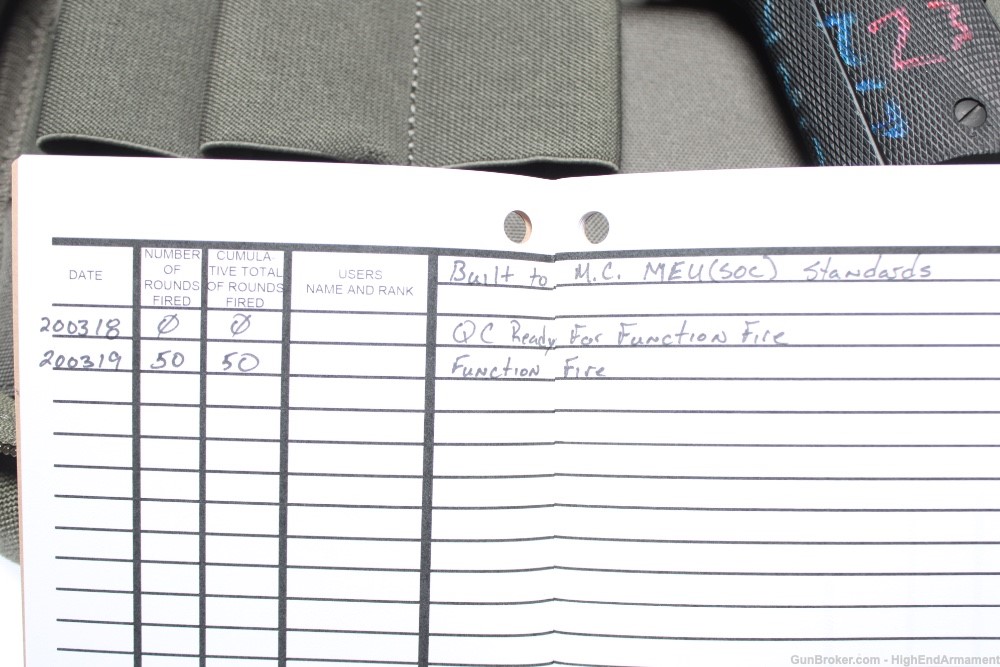 23
DATE
NUMBER
OF
ROUNDS
FIRED
CUMULA-
TIVE TOTAL
OF ROUNDS
FIRED
USERS
NAME AND RANK
Built to M.C. MEU(SOC) Standards
200318 Ø Ø QC Ready For Function Fire
200319 50 50 Function Fire
GunBroker.com - HighEndArmament